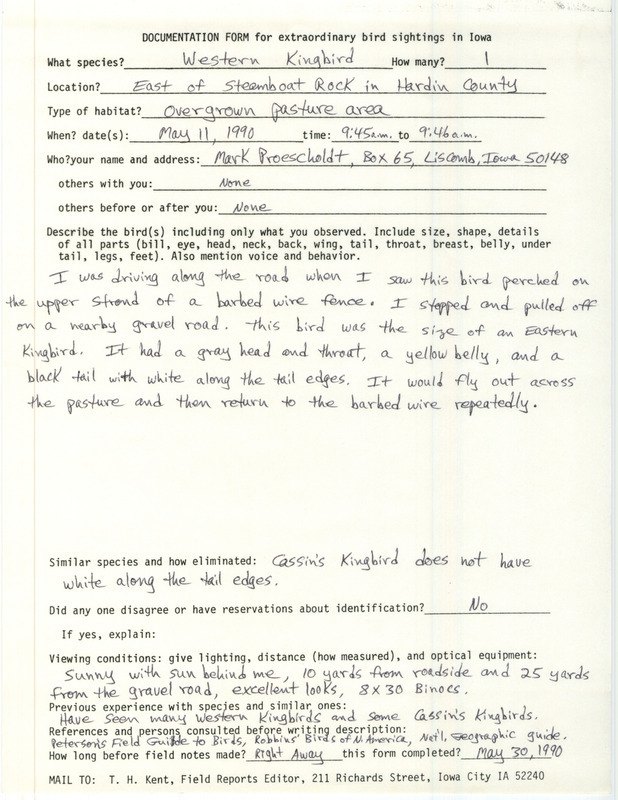 DOCUMENTATION FORM for extraordinary bird sightings in Iowa
What species? Western Kingbird How many? 1
Location? East of Steamboat Rock in Hardin County
Type of habitat? Overgrown pasture area
When? date(s): May 11, 1990 time: 9:45 a.m. to 9:46 a.m.
Who?your name and address: Mark Proescholdt, Box 65, Liscomb, Iowa 50148
others with you: None
others before or after you: None
Describe the bird(s) including only what you observed. Include size, shape, details
of all parts (bill, eye, head, neck, back, wing, tail, throat, breast, belly, under
tail, legs, feet). Also mention voice and behavior.
I was driving along the road when I saw this bird perched on
the upper strand of a barbed wire fence. I stopped and pulled off
on a nearby gravel road. This bird was the size of an Eastern
Kingbird. It had a gray head and throat, a yellow belly, and a
black tail with white along the tail edges. It would fly out across
the pasture and then return to the barbed wire repeatedly.
Similar species and how eliminated: Cassin's Kingbird does not have
white along the tail edges.
Did any one disagree or have reservations about identification? No
If yes, explain:
Viewing conditions: give lighting, distance (how measured), and optical equipment:
Sunny with sun behind me, 10 yards from roadside and 25 yards
from the gravel road, excellent looks, 8x30 Binocs.
Previous experience with species and similar ones:
Have seen many Western Kingbirds and some Cassin's Kingbirds.
References and persons consulted before writing description:
Peterson's Field Guide to Birds, Robbins' Birds of N. America, Nat'l. Geographic guide.
How long before field notes made? Right Away this form completed? May 30, 1990
MAIL TO: T. H. Kent, Field Reports Editor, 211 Richards Street, Iowa City IA 52240